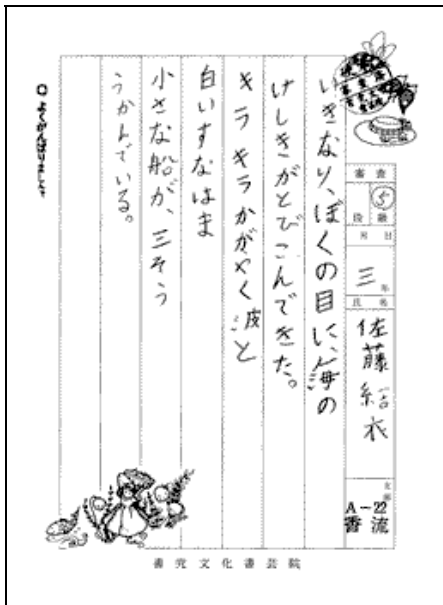 審査
5
段 級
月 日
三年
氏名
佐藤結衣
支部
A-22
香流
いきなり、ぼくの目に、海の
けしきがとびこんできた。
キラキラかがやく波と
白いすなはま
小さな船が、三そう
うかんでいる。
よくがんばりました
書究文化書芸院